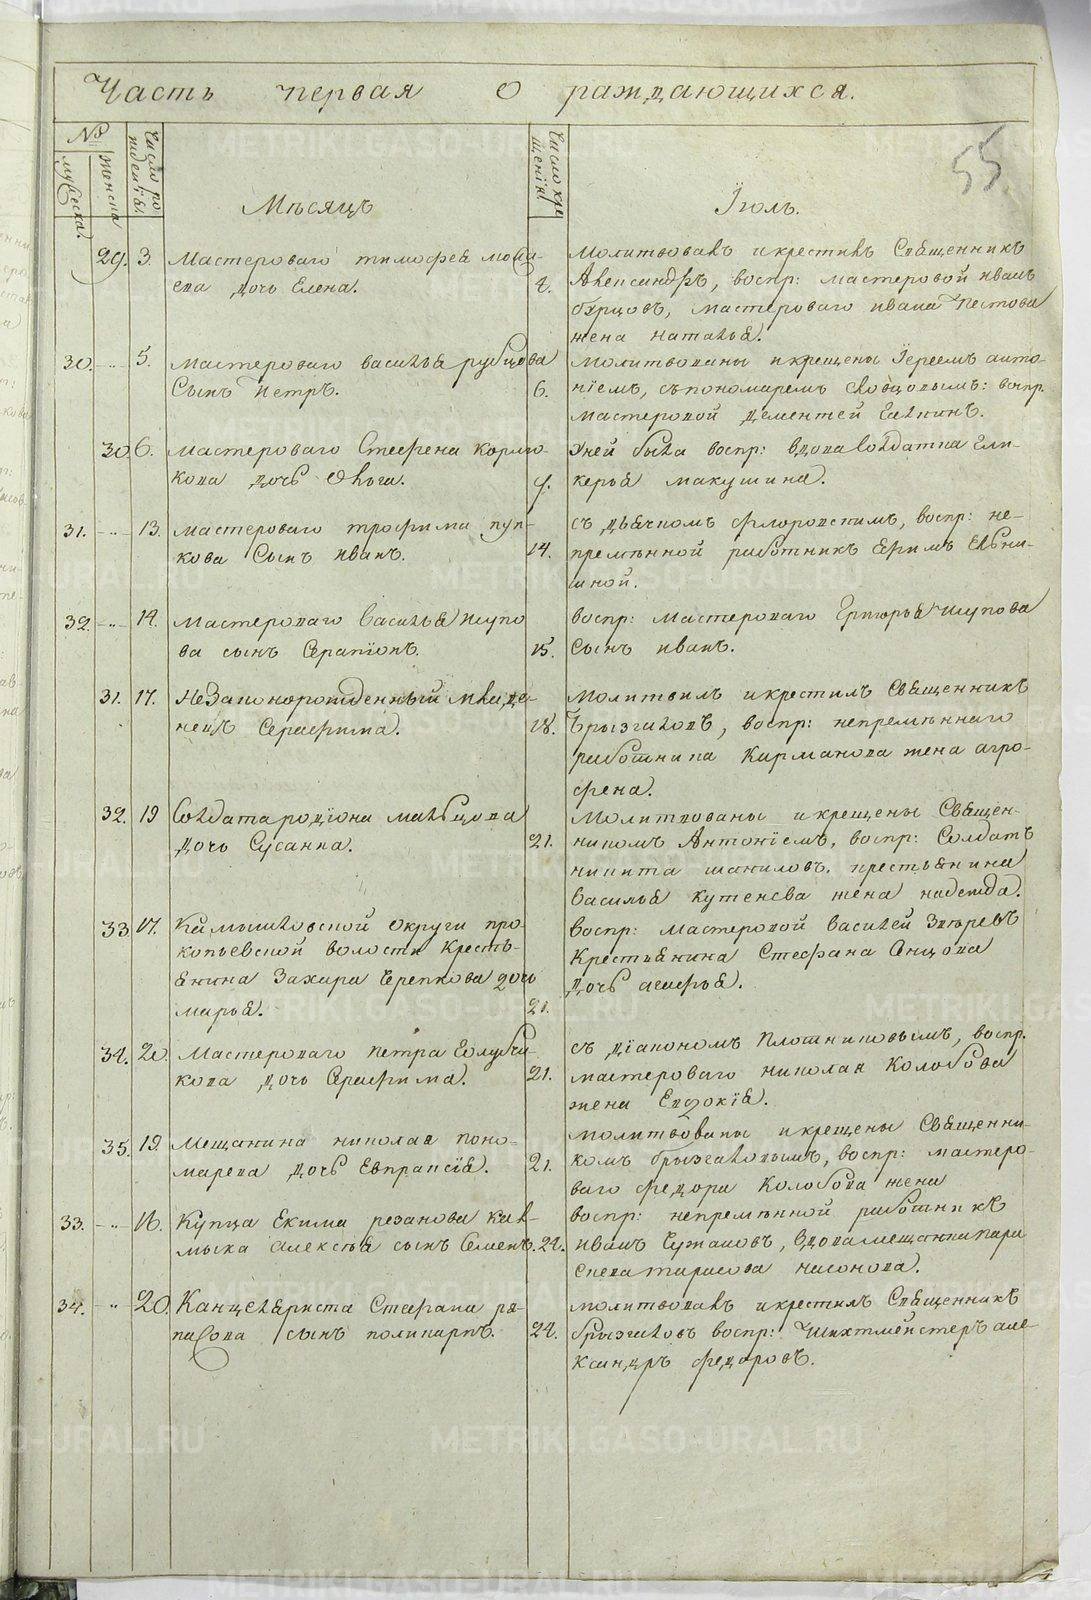 Часть первая о раждающихся.
55
№
мужеска.
женска
Число рождения.
Число крещенiя
Мѣсяцъ
Iюль.
29. 3. Мастероваго тимофея
дочь Елена. 4.
молитвовавъ и крестивъ Священникъ
Александръ, воспр: мастеровой иванъ
бурцовъ, мастероваго ивана Пестова
жена наталья.
30. -"- 5. Мастероваго василья рубцова
Сынъ Петръ. 6.
молитвованы и крещены Iереемъ анто-
нiемъ, съ пономаремъ Словцовымъ: воспр.
мастеровой дементей
30. 6. мастероваго Стефана кормю-
кова дочь Ольга. 9.
у ней была воспр: вдова Солдатка Гли-
керья макушина.
31. -"- 13. мастероваго трофима пуп-
кова Сынъ иванъ. 14.
съ дьячкомъ флоровскимъ, воспр: не-
премѣнной работникъ Ефимъ
32. -"- 14. мастероваго василья шупо
ва сынъ Серапiонъ. 15.
воспр: мастероваго Григорья шупова
Сынъ иванъ.
31. 17. Незаконорожденный младе-
нецъ Серафима. 18.
молитвилъ и крестилъ Священникъ
Брызгаловъ, воспр: непремѣннаго
работника Кирманова жена агро-
фена.
32. 19 Солдата родiона мальцова
дочь Сусанна. 21.
молитвованы и крещены Священ-
никомъ Антонiемъ, воспр: Солдатъ
никита шатиловъ, крестьянина
василья кутенева жена надежда.
33. 17. Камышловской округи про-
копьевской волости Кресть-
янина Захара Черепкова дочь
марья. 21.
воспр: мастеровой василей Зыревъ
Крестьянина Стефана
дочь агафья.
34. 20. мастероваго петра Голубчи-
кова дочь Серафима. 21.
съ дiакономъ Плотниковымъ, воспр.
мастероваго николая Колобова
жена Евдокiя.
35. 19. мещанина николая поно-
марева дочь Евпраксiя. 21.
молитвованы и крещены Священни-
комъ брызгаловымъ, воспр: мастеро-
ваго федора Колобова жена
33. -"- 16. Купца Екима резанова кал-
мыка алексѣя сынъ Семенъ. 24.
воспр: непремѣнной работникъ
иванъ Чужановъ, вдова мещанка пара
скева тарасова насонова.
34. -" 20. Канцеляриста Стефана
сынъ поликарпъ. 24.
молитвовавъ и крестилъ Священникъ
брызгаловъ воспр: шихтмейстеръ але-
ксандръ федоровъ.
METRIKI.GASO-URAL.RU